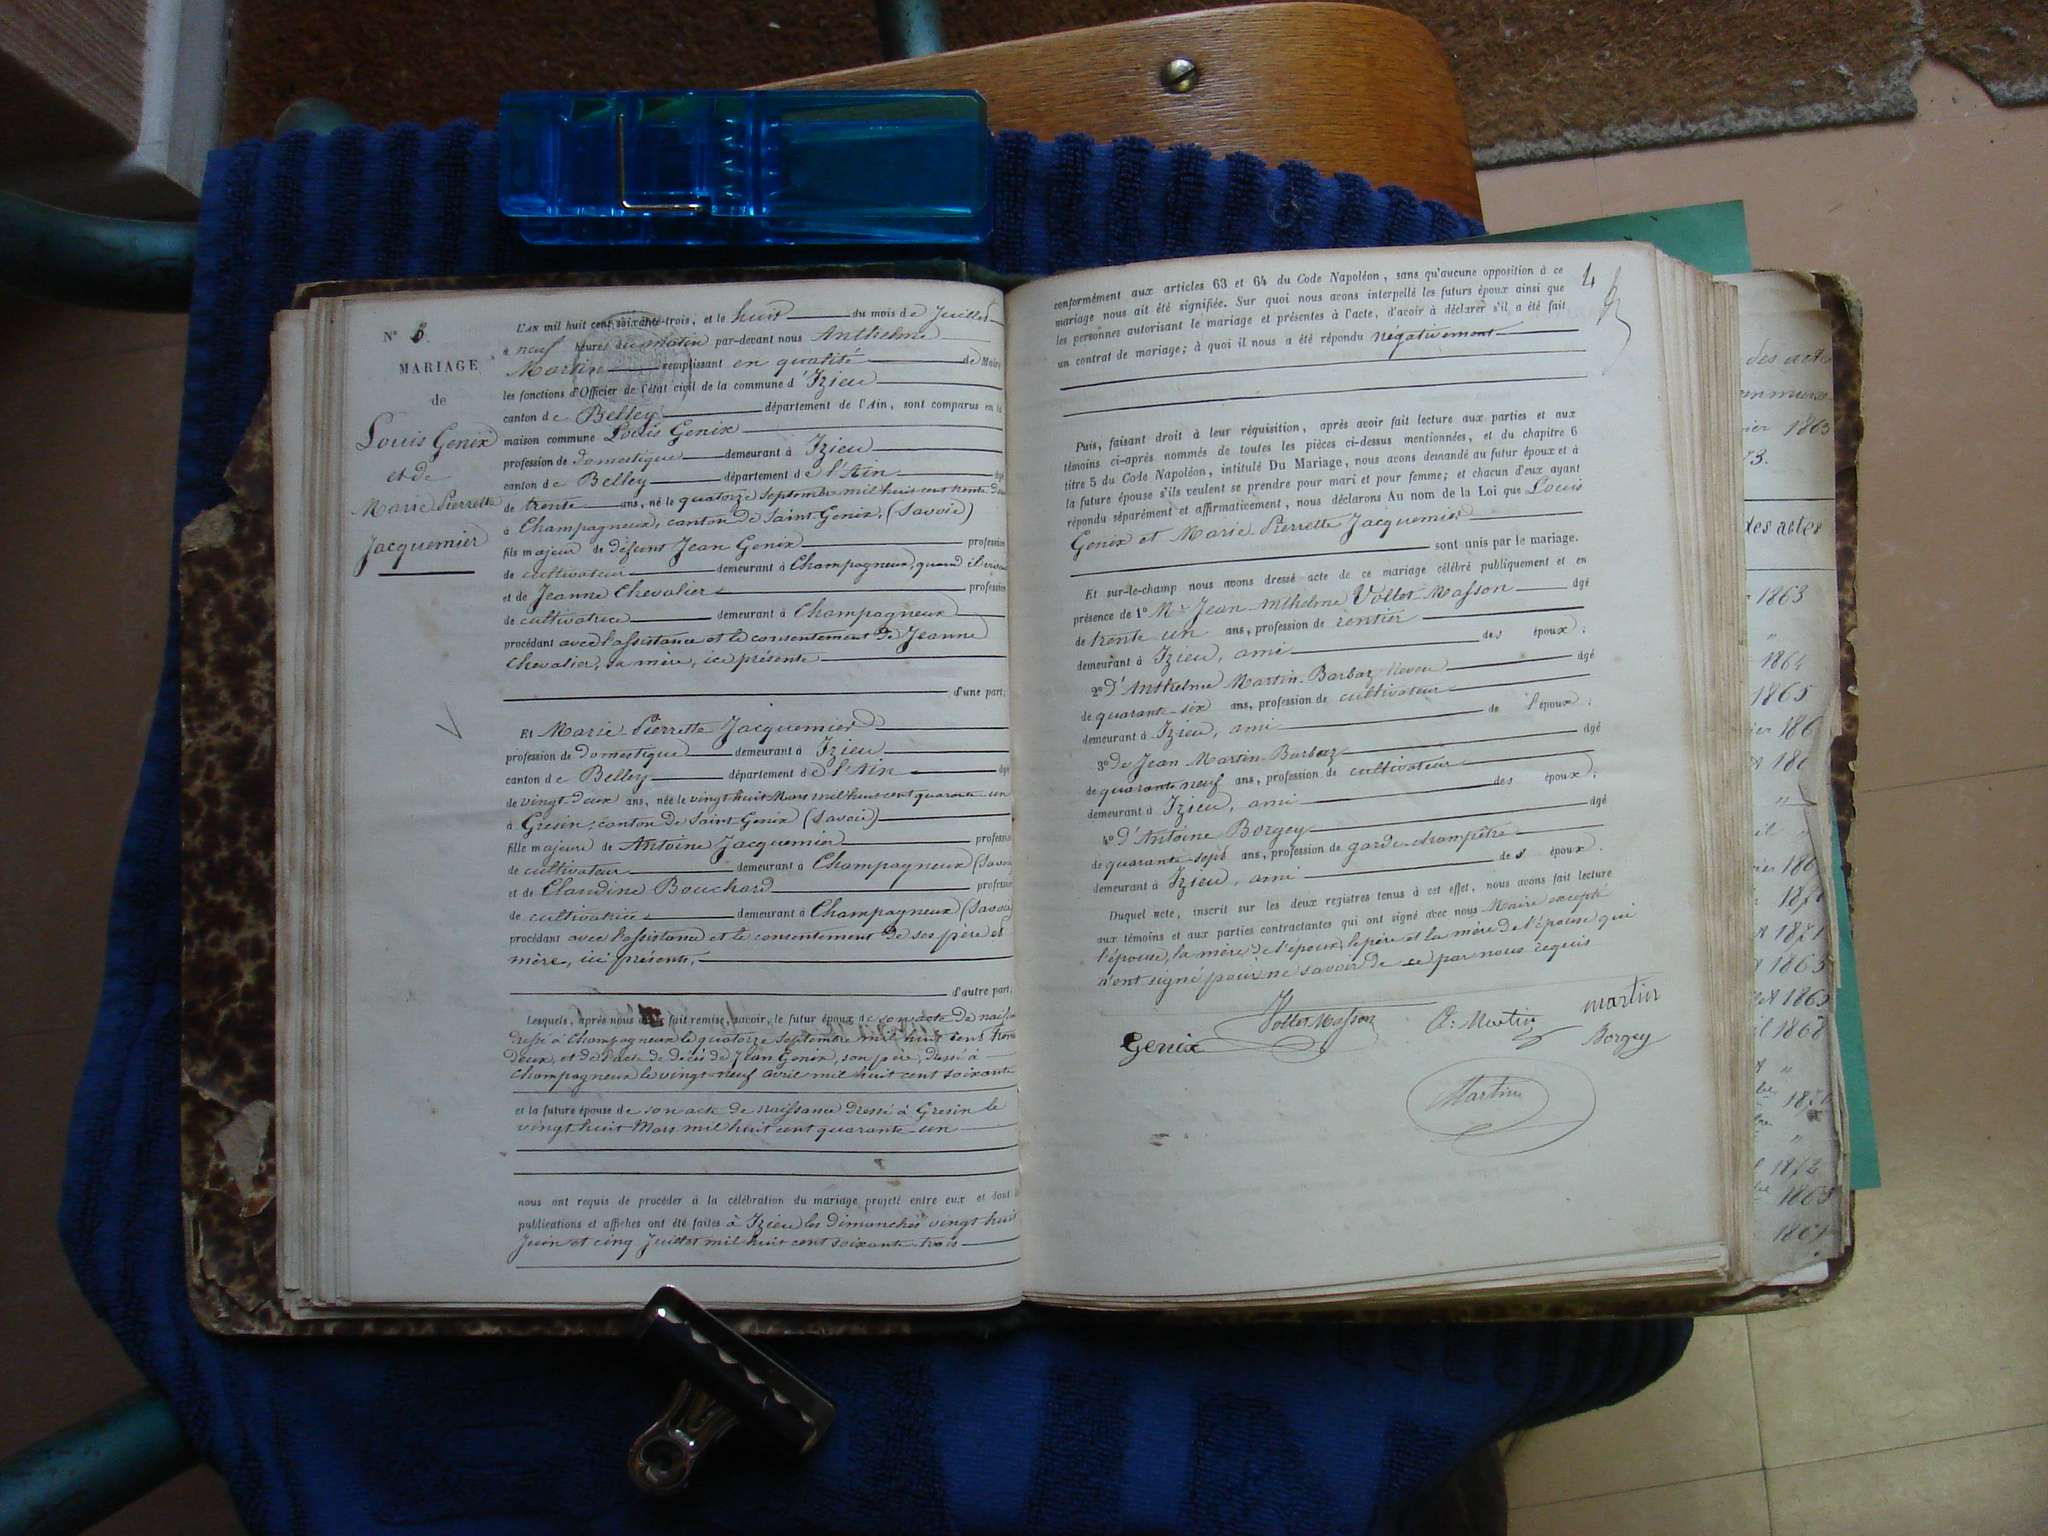 N° 6
MARIAGE
de
Louis Genix
et de
Marie Pierrette
Jacquemier
L'AN mil huit cent soixante-trois, et le huit du mois de Juillet
à neuf heures du matin par-devant nous Anthelme
Martin remplissant en qualité de Maire
les fonctions d'Officier de l'état civil de la commune d'Izieu
canton de Belley département de l'Ain, sont comparus en la
maison commune Louis Genix
profession de domestique demeurant à Izieu
canton de Belley département de l'Ain âgé
de trente ans, né le quatorze septembre mil huit cent trente deux
à Champagneux, canton de Saint-Genix, (Savoie)
fils majeur de défunt Jean Genix profession
de cultivateur demeurant à Champagneux, quand il vivait
et de Jeanne Chevalier profession
de cultivatrice demeurant à Champagneux
procédant avec l'assistance et le consentement de Jeanne
Chevalier, sa mère, ici présente
d'une part;
Et Marie Pierrette Jacquemier
profession de domestique demeurant à Izieu
canton de Belley département de l'Ain âgé
de vingt-deux ans, née le vingt huit Mars mil huit cent quarante un
à Gresin, canton de Saint Genix (Savoie)
fille majeure de Antoine Jacquemier profession
de cultivateur demeurant à Champagneux (Savoie
et de Claudine Bouchard profession
de cultivatrice demeurant à Champagneux (Savoie
procédant avec l'assistance et le consentement de ses père et
mère, ici présents,
d'autre part;
Lesquels, après nous avoir fait remise, savoir, le futur époux de son acte de naissance
dressé à Champagneux le quatorze septembre mil huit cent trente
deux, et de l'acte de décès de Jean Genix, son père, dressé à
Champagneux le vingt-neuf avril mil huit cent soixante
et la future épouse de son acte de naissance dressé à Gresin le
vingt huit Mars mil huit cent quarante-un
nous ont requis de procéder à la célébration du mariage projeté entre eux et dont les
publications et affiches ont été faites à Izieu les dimanches vingt huit
Juin et cinq Juillet mil huit cent soixante-trois
4
conformément aux articles 63 et 64 du Code Napoléon, sans qu'aucune opposition à ce
mariage nous ait été signifiée. Sur quoi nous avons interpellé les futurs époux ainsi que
les personnes autorisant le mariage et présentes à l'acte, d'avoir à déclarer s'il a été fait
un contrat de mariage; à quoi il nous a été répondu négativement
Puis, faisant droit à leur réquisition, après avoir fait lecture aux parties et aux
témoins ci-après nommés de toutes les pièces ci-dessus mentionnées, et du chapitre 6
titre 5 du Code Napoléon, intitulé Du Mariage, nous avons demandé au futur époux et à
la future épouse s'ils veulent se prendre pour mari et pour femme; et chacun d'eux ayant
répondu séparément et affirmativement, nous déclarons Au nom de la Loi que Louis
Genix et Marie-Pierrette Jacquemier
sont unis par le mariage.
Et sur-le-champ nous avons dressé acte de ce mariage célébré publiquement et en
présence de 1° Mr Jean Anthelme Vollet-Masson âgé
de trente un ans, profession de rentier
demeurant à Izieu, ami des époux;
2° d'Anthelme Martin-Barbaz neveu âgé
de quarante-six ans, profession de cultivateur
demeurant à Izieu, ami de l'époux;
3° de Jean Martin-Barbaz âgé
de quarante neuf ans, profession de cultivateur
demeurant à Izieu, ami des époux;
4° d'Antoine Borgey âgé
de quarante-sept ans, profession de garde-champêtre
demeurant à Izieu, ami des époux.
Duquel acte, inscrit sur les deux registres tenus à cet effet, nous avons fait lecture
aux témoins et aux parties contractantes qui ont signé avec nous Maire excepté
l'épouse, la mère de l'époux, le père et la mère de l'épouse qui
n'ont signé pour ne savoir de ce par nous requis
Genix
Vollet Masson
A: Martin
martin
Borgey
Martin
des acte
1863
73.
des actes
1863
"
1864
1865
186
"
1871
1863
1868
"
1872
1863